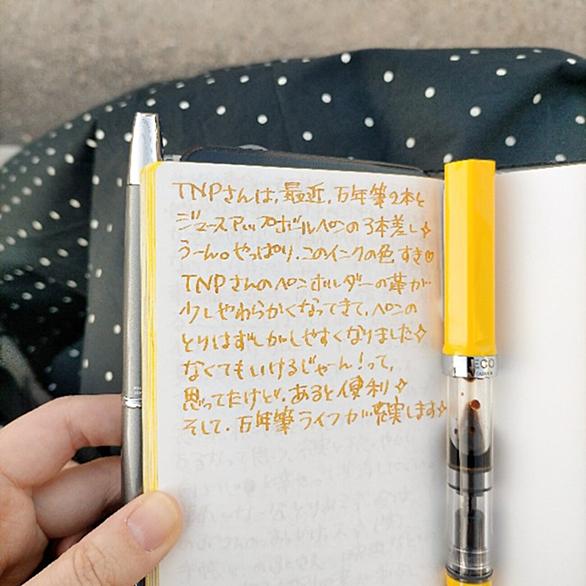 TNPさんは、最近、万年筆2本と
ジュースアップボールペンの3本差し✧
うーん。やっぱり、このインクの色、すき♡
TNPさんのペンホルダーの革が
少しやわらかくなってきて、ペンの
とりはずしがしやすくなりました✧
なくてもいけるじゃーん!って、
思ってたけど、あると便利✧
そして、万年筆ライフが充実します✧
ECO